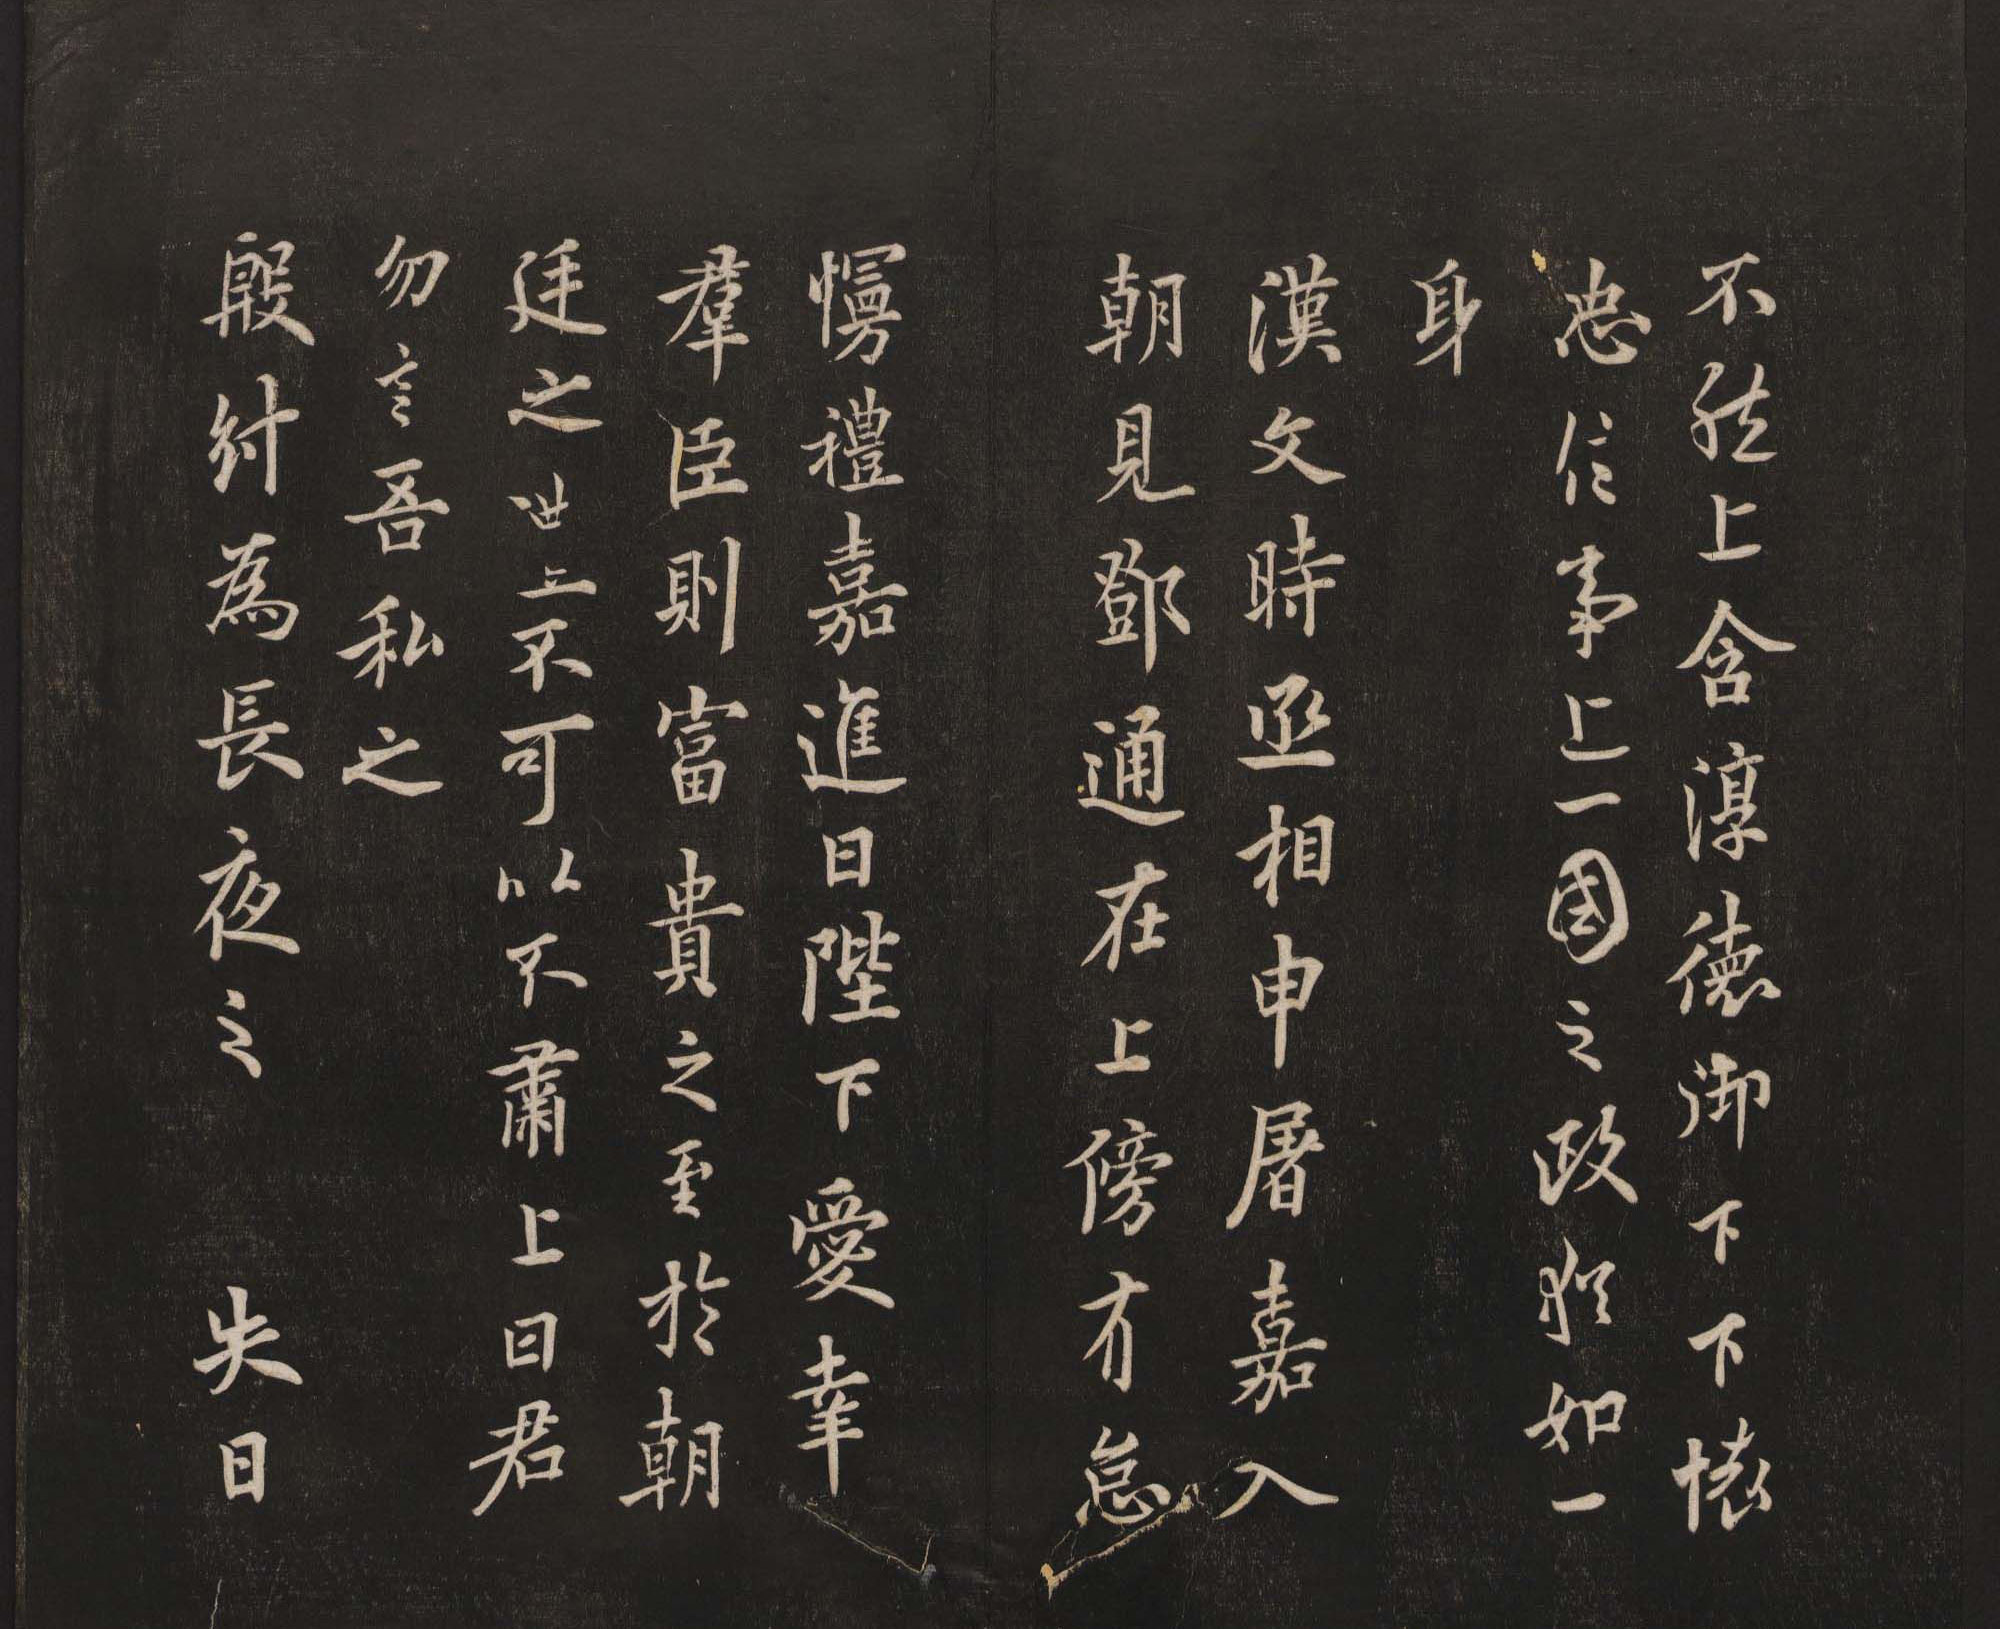 不然上含淳德御下下懐
忠信事上一國之政猶如一
身
漢文時丞相申屠嘉入
朝見鄧通在上傍有怠
慢禮嘉進曰陛下愛幸
羣臣則富貴之至於朝
廷之世上不可以不肅上曰君
勿言吾私之
殷紂為長夜之 失日